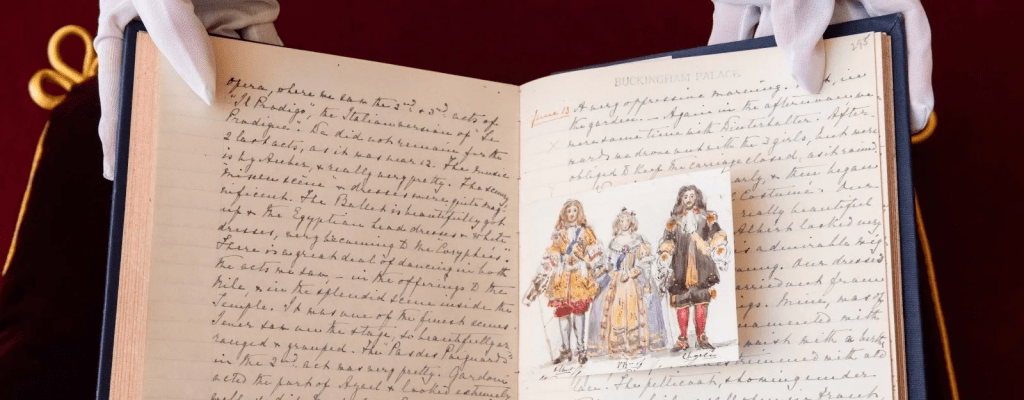 opera, where we saw the 2nd & 3rd acts of
"Il Prodigo", the Italian version of "Le
Prodigue". We did not remain for the
2 last acts, as it was near 12. The music
is by Auber, & really very pretty. The scenery,
mise en scène & dresses were quite mag-
nificent. The Ballet is beautifully got
up & the Egyptian head dresses & white
dresses, very becoming to the Coryphées.
There is a great deal of dancing in both
the acts we saw – in the offerings to the
Nile, & in the splendid scene inside the
Temple. It was one of the finest scenes
I ever saw on the stage, so beautifully ar-
ranged & grouped. The Pas des
in the 2nd act was very pretty. Gardoni
acted the part of Azael & looked extremely
well
245
BUCKINGHAM PALACE
June 13 A very oppressive morning. in
the garden. – Again in the afternoon we
were some time with Winterhalter. After-
wards we drove out with the 2 girls, but were
obliged to keep the carriage closed, as it rained
early, & then began
Costumes. Our
really beautiful
Albert looked very
is admirable wig
Our dresses
Mine, was of
ornamented with
waist with a
trimmed with old
lace. The petticoat, showing under